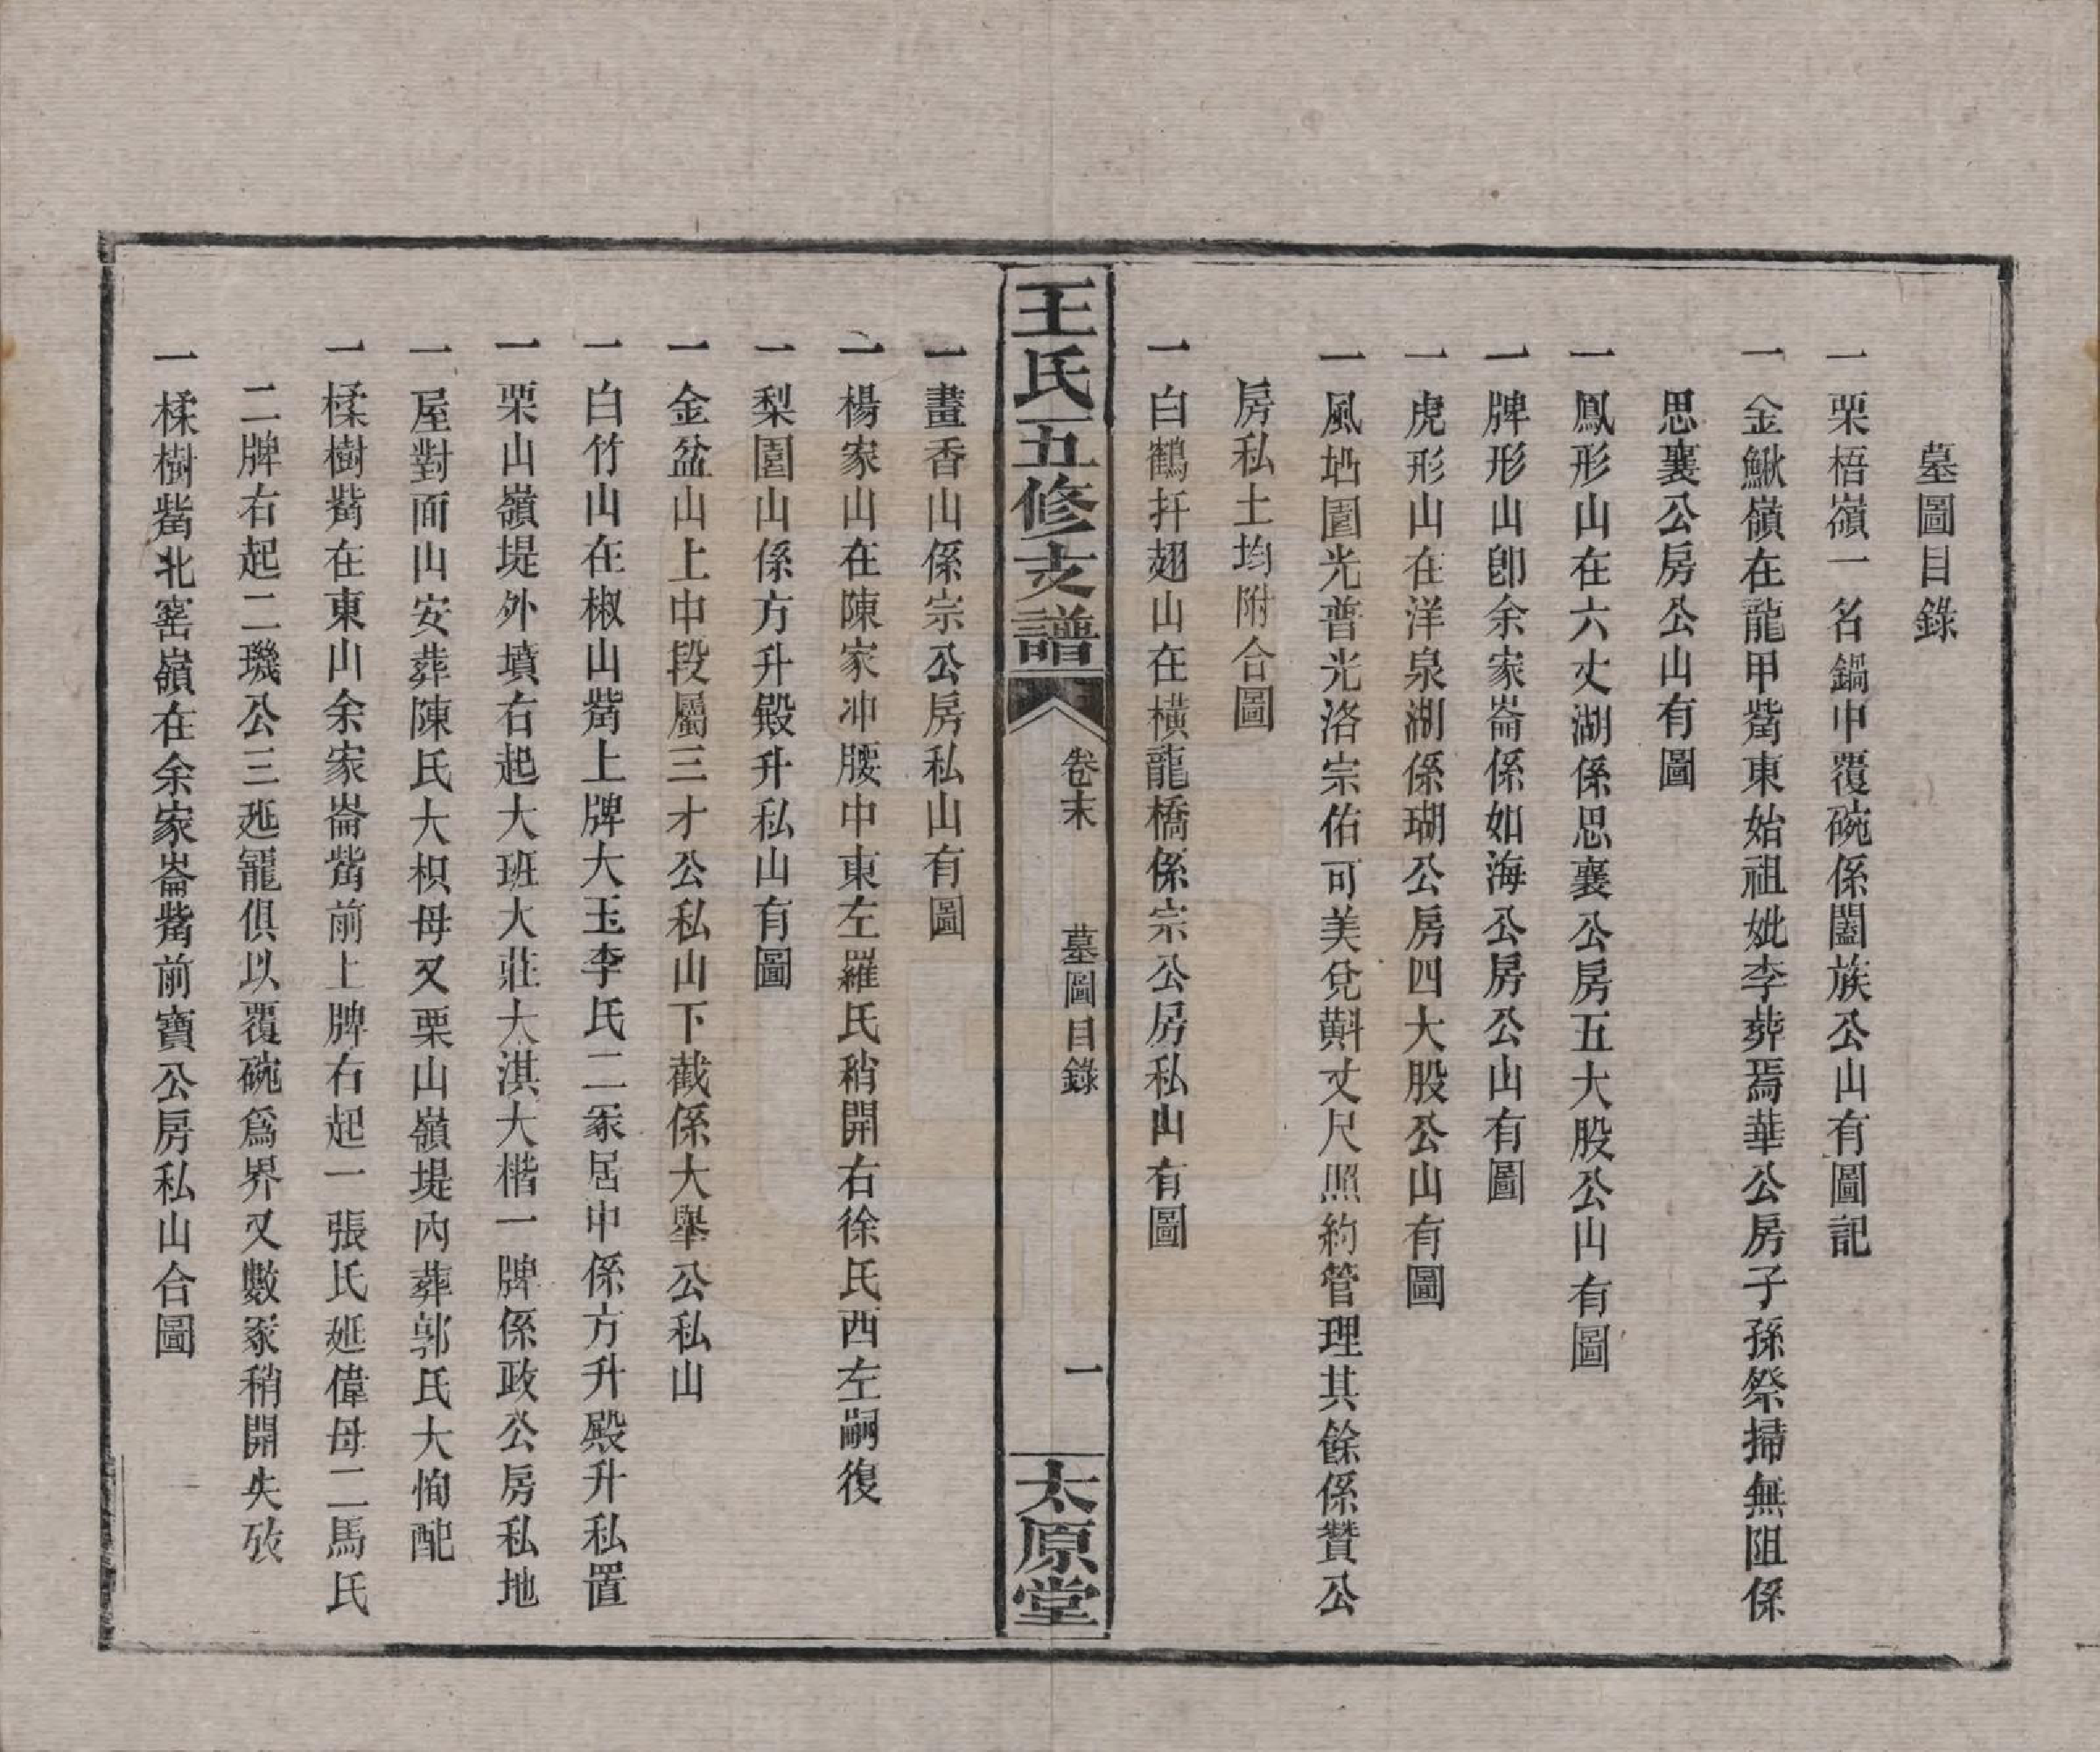 墓圖目錄
一栗梧嶺一名鍋中覆碗係闔族公山有圖記
一金鰍嶺在龍甲嘴東始祖妣李葬焉華公房子孫祭掃無阻係
思襄公房公山有圖
一鳳形山在六丈湖係思襄公房五大股公山有圖
一牌形山卽余家崙係如海公房公山有圖
一虎形山在洋泉湖係瑚公房四大股公山有圖
一風坫園光普光洛宗佑可美兌斢丈尺照約管理其餘係贊公
房私土均附合圖
一白鶴扞翅山在橫龍橋係宗公房私山有圖
王氏五修支譜
卷末
墓圖目錄
一
太原堂
一畫香山係宗公房私山有圖
一楊家山在陳家冲腰中東左羅氏稍開右徐氏西左嗣復
一梨園山係方升殿升私山有圖
一金盆山上中段屬三才公私山下截係大舉公私山
一白竹山在椒山嘴上牌大玉李氏二冢居中係方升殿升私置
一栗山嶺堤外墳右起大班大莊大淇大楷一牌係政公房私地
一屋對面山安葬陳氏大枳母又栗山嶺堤內葬郭氏大恂配
一楺樹嘴在東山余家崙嘴前上牌右起一張氏延偉母二馬氏
二牌右起二璣公三延寵俱以覆碗爲界又數冢稍開失攷
一楺樹嘴北窰嶺在余家崙嘴前寶公房私山合圖